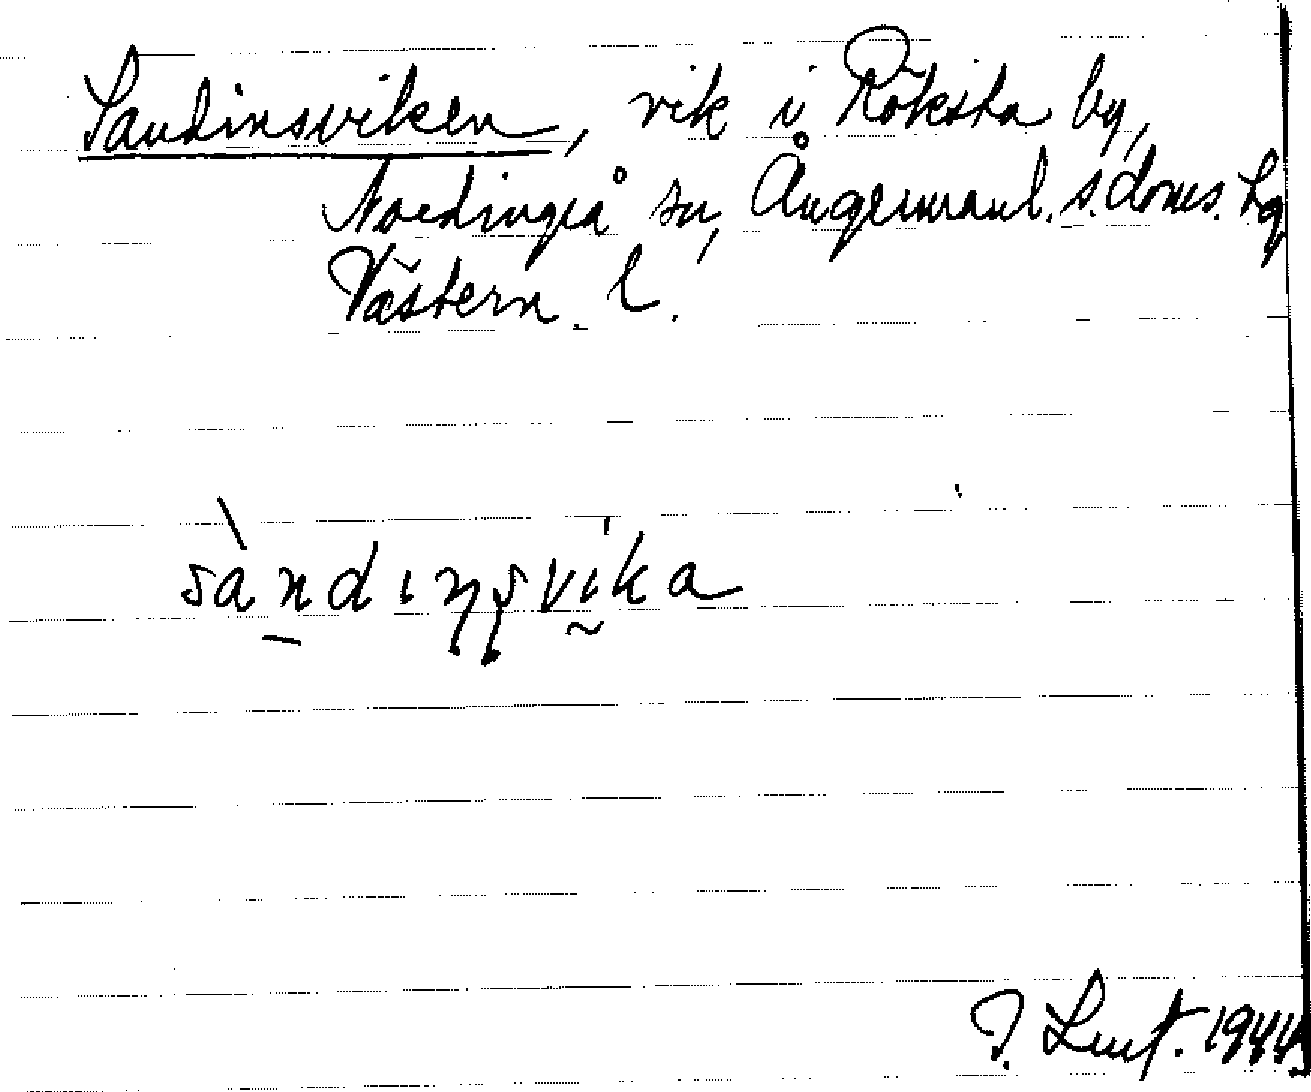 Sandinsviken, vik i Röksta by,
Nordingrå sn, Ångermanl. s. doms. hg
Västern. l.
sàndıŋsvika
1944.